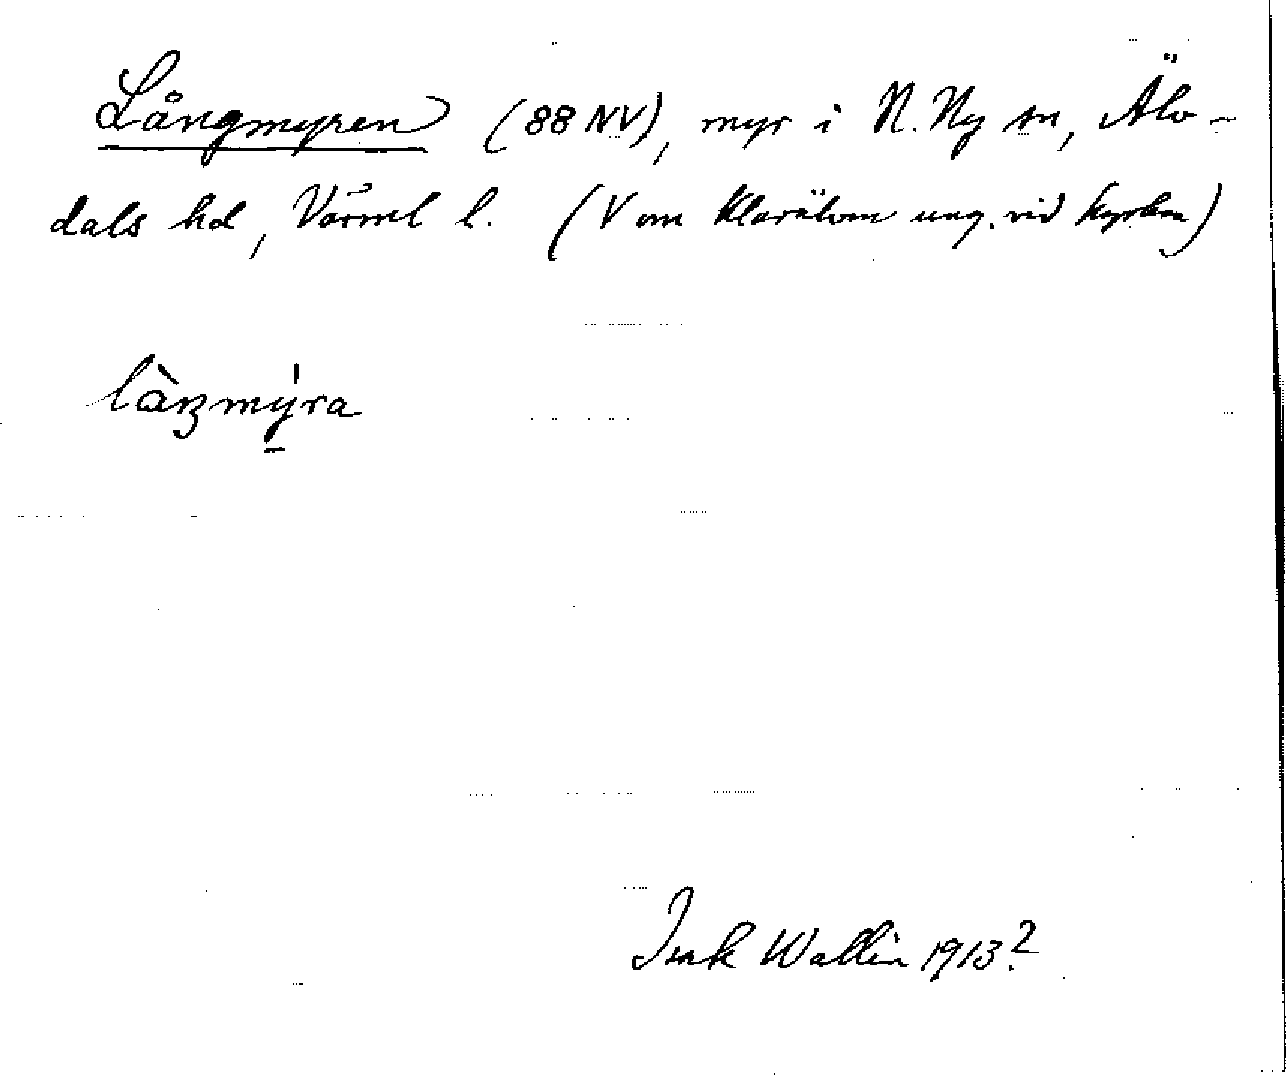 Långmyren (88 NV), myr i N. Ny sn, Älv-
dals hd, Värml l. (V om Klarälven ung. vid kyrkan)
làŋmy̆ra
Isak Wallin 1913?